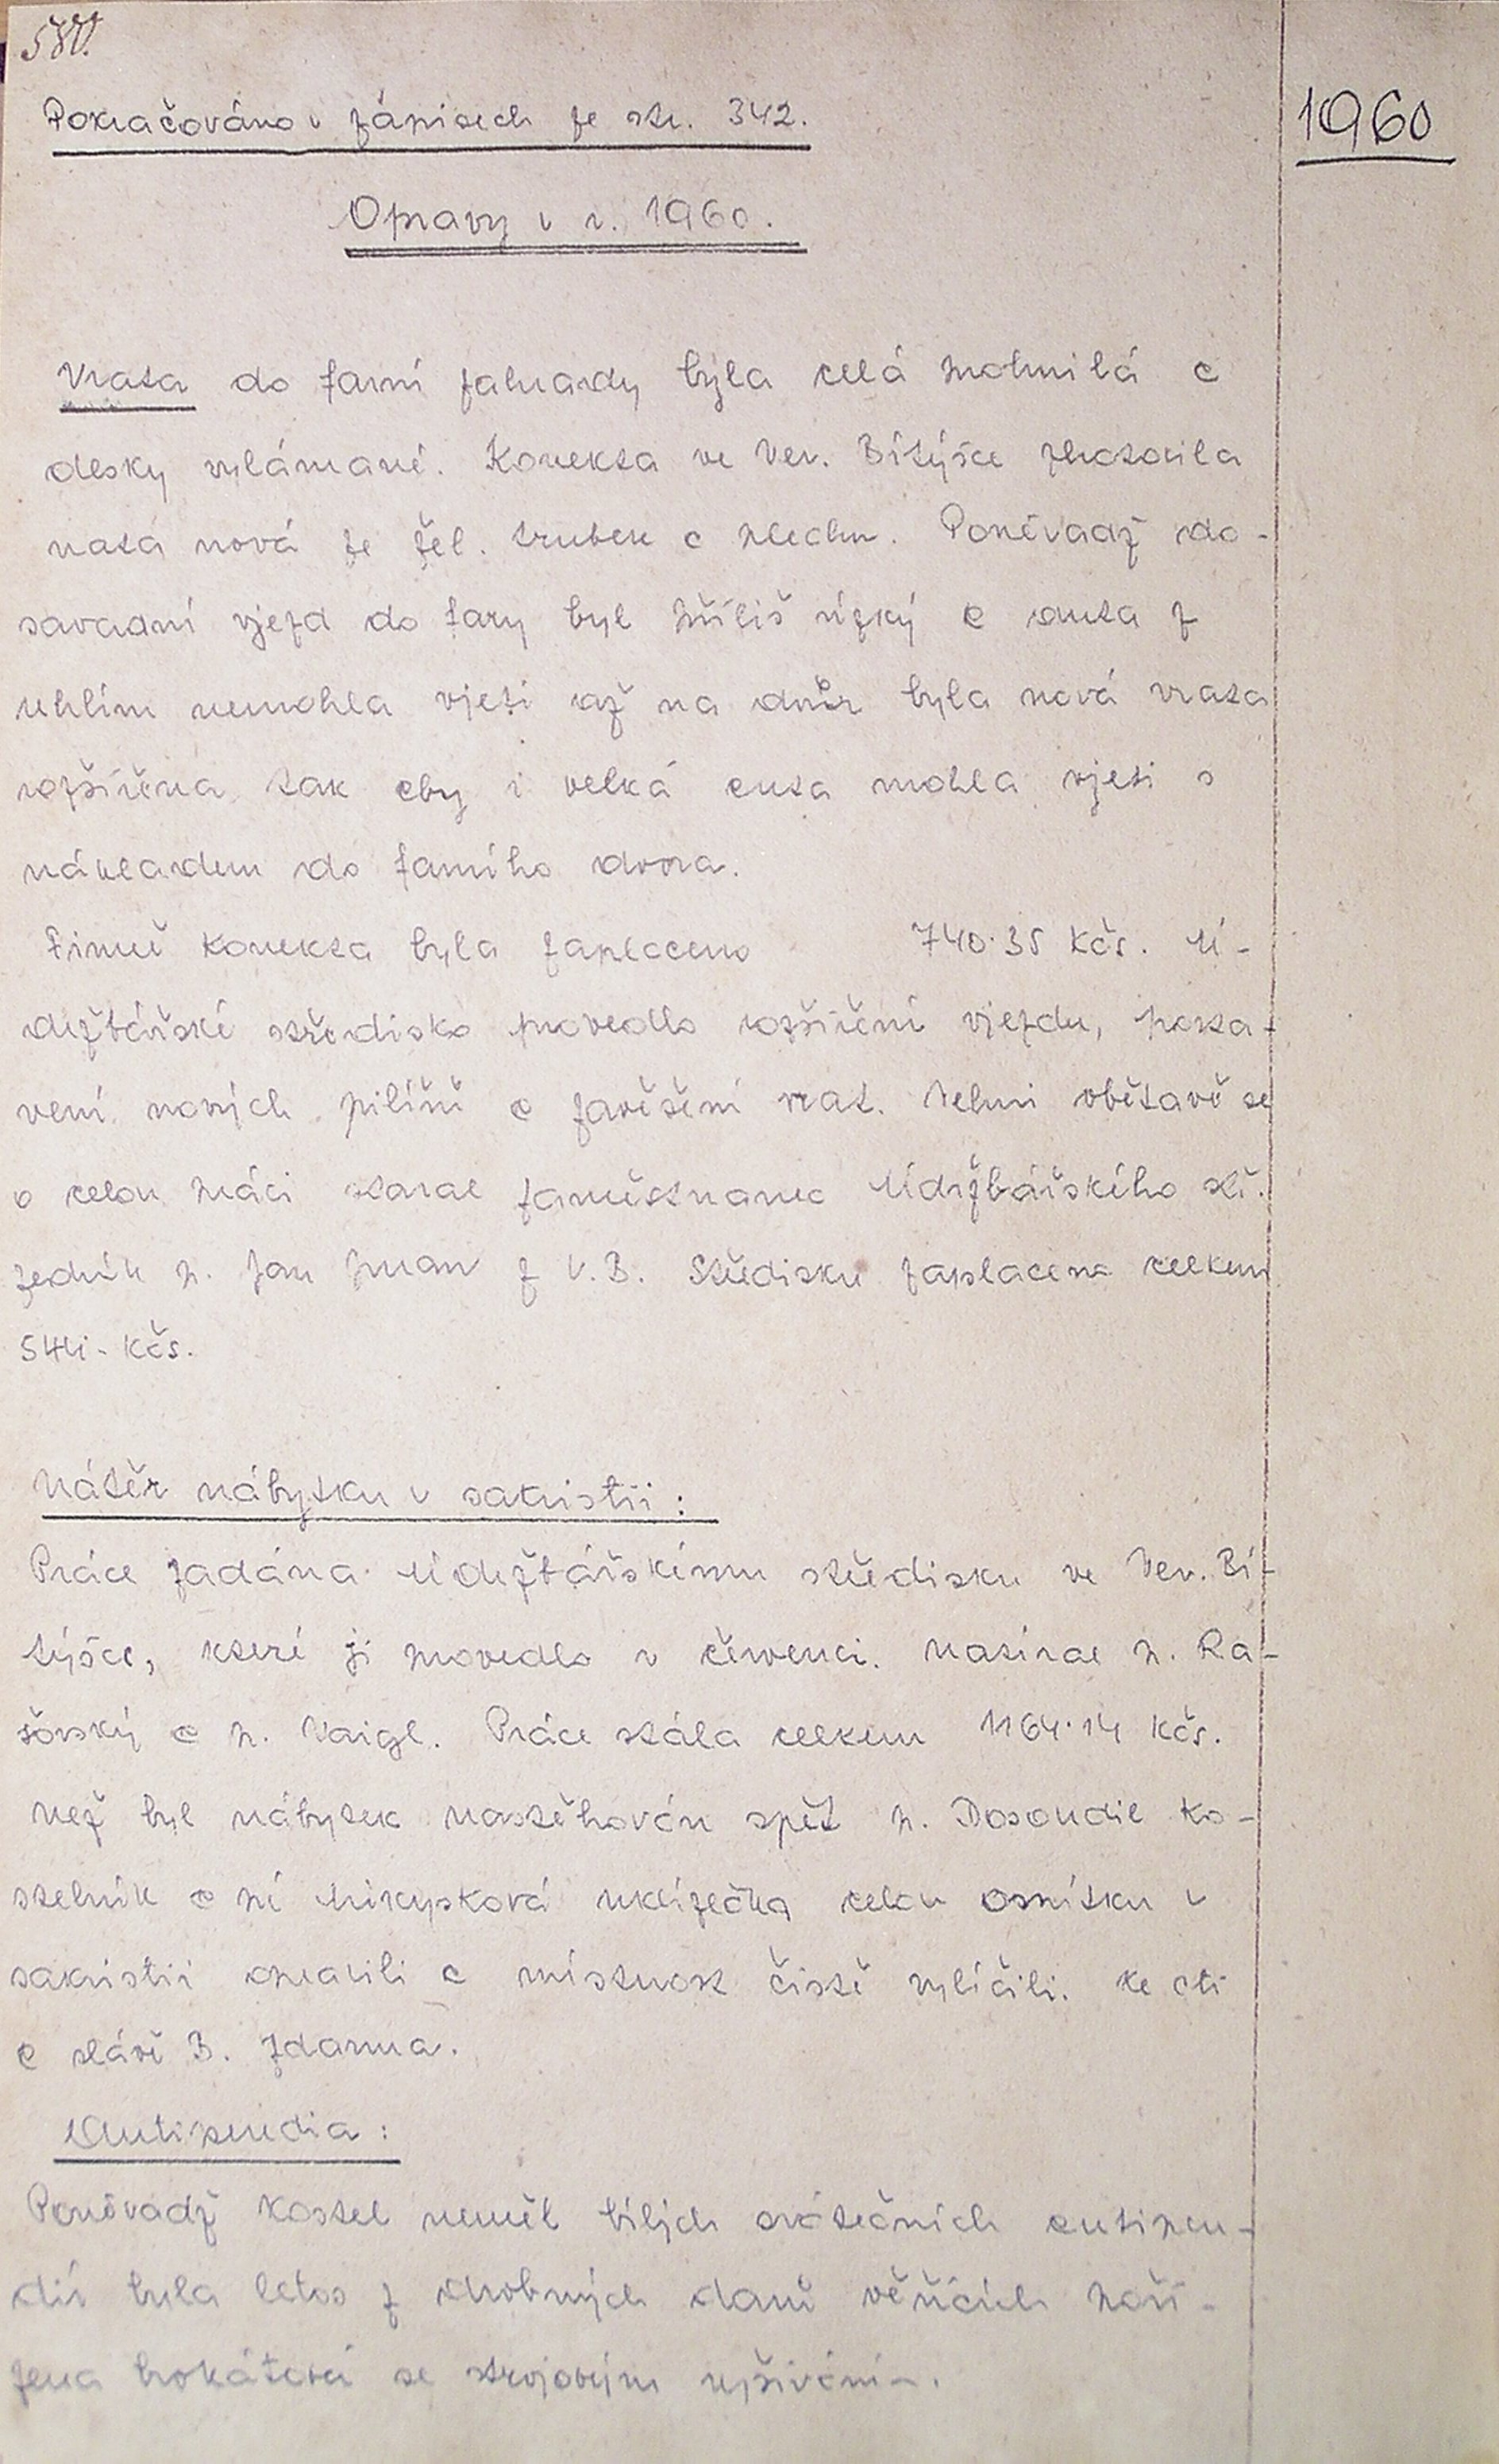 580.
Pokračováno v zápisech ze str. 342.
1960
Opravy v r. 1960.
Vrata do farní zahrady byla celá prohnilá a
desky vylámané. Konekta ve Vev. Bítýšce zhotovila
vrata nová ze žel. trubek a plechu. Poněvadž do-
savadní vjezd do fary byl příliš úzký a auta z
uhlím nemohla vjeti až na dvůr byla nová vrata
rozšířena tak aby i velká auta mohla vjeti s
nákladem do farního dvora.
Firmě Konekta byla zaplaceno 740.35 Kčs. U-
držbářské středisko provedlo rozšíření vjezdu, posta-
vení nových pilířů a zavěšení vrat. Velmi obětavě se
o celou práci staral zaměstnanec Údržbářského stř.
zedník p. Jan z V.B. Středisku zaplaceno celkem
544.- Kčs.
Nátěr nábytku v sakristii:
Práce zadána Údržbářskému středisku ve Vev. Bí-
týšce, které ji provedlo v červenci. Natíral p. Ra-
šovský a p. Vaigl. Práce stála celkem 1164.14 Kčs.
Než byl nábytek nastěhován zpět p. Dosoudil ko-
stelník a pí Mikysková uklízečka celou omítku v
sakristii opravili a místnost čistě vylíčili. Ke cti
a slávě B. zdarma.
Antipendia:
Poněvadž kostel neměl bílých svátečních antipen-
dií byla letos z drobných darů věřících poří-
zena brokátová se strojovým vyšíváním.